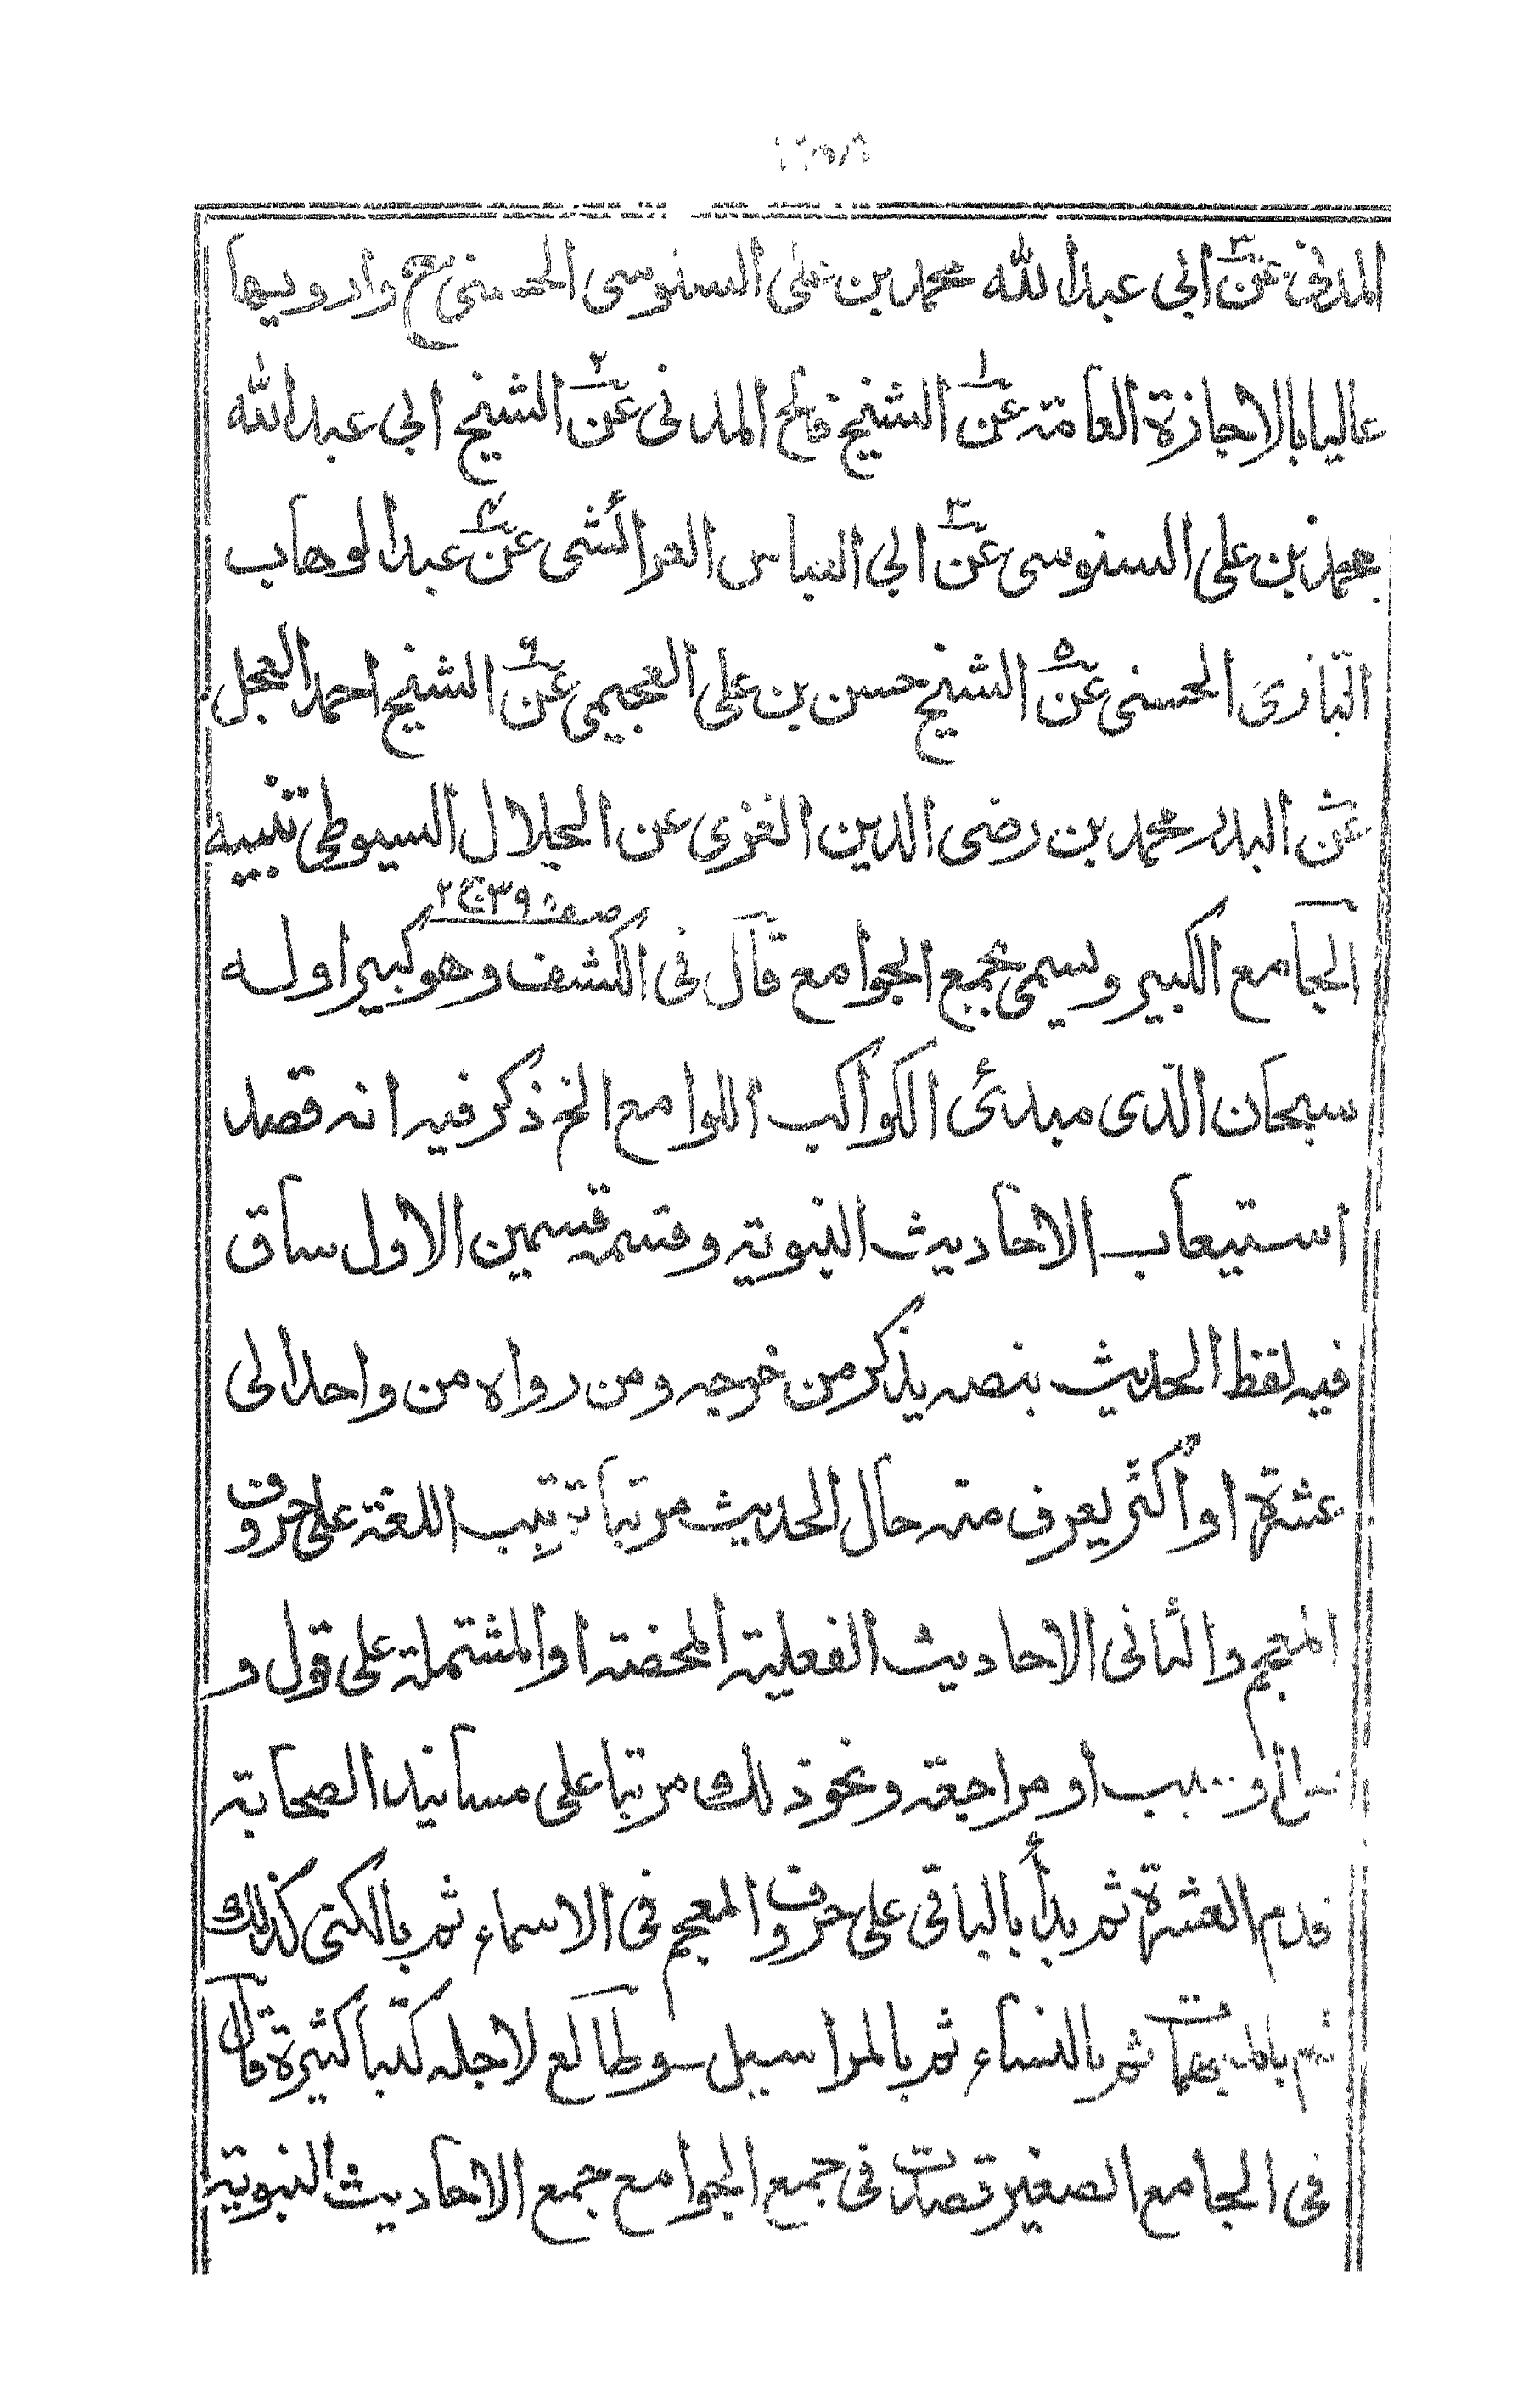 المدنى عن ابي عبد الله محمد بن على السنوسى الحسنى ح وارويها
عاليا بالاجازة العامة عن ١ الشيخ فالح المدنى عن ٢ الشيخ ابي عبد الله
محمد بن على السنوسى عن ٣ ابي العباس العرائشى عن ٤ عبد الوهاب
التازى الحسنى عن ٥ الشيخ حسن بن على العجيمى عن ٦ الشيخ احمد العجل
عن البدر محمد بن رضى الدين الغزى عن الجلال السيوطى تنبيه
صفه ٣٩٨ ج ٢
الجامع الكبير ويسمى بجمع الجوامع قال فى الكشف وهو كبير اوله
سبحان الذى مبدئ الكواكب اللوامع الخ ذكر فيه انه قصد
استيعاب الاحاديث النبوية وقسمه قسمين الاول ساق
فيه لفظ الحديث بنصه يذكر من خرجه ومن رواه من واحد الى
عشرة او اكثر يعرف منه حال الحديث مرتبا ترتيب اللغة على حروف
المعجم والثانى الاحاديث الفعلية المحضة او المشتملة على قول و
او سبب او مراجعة ونحو ذلك مرتبا على مسانيد الصحابة
قدم العشرة ثم بدأ بالباقى على حروف المعجم فى الاسماء ثم بالكنى كذلك
ثم بالمبهمات ثم بالنساء ثم بالمراسيل وطالع لاجله كتبا كثيرة قال
فى الجامع الصغير قصدت فى جمع الجوامع جمع الاحاديث النبوية